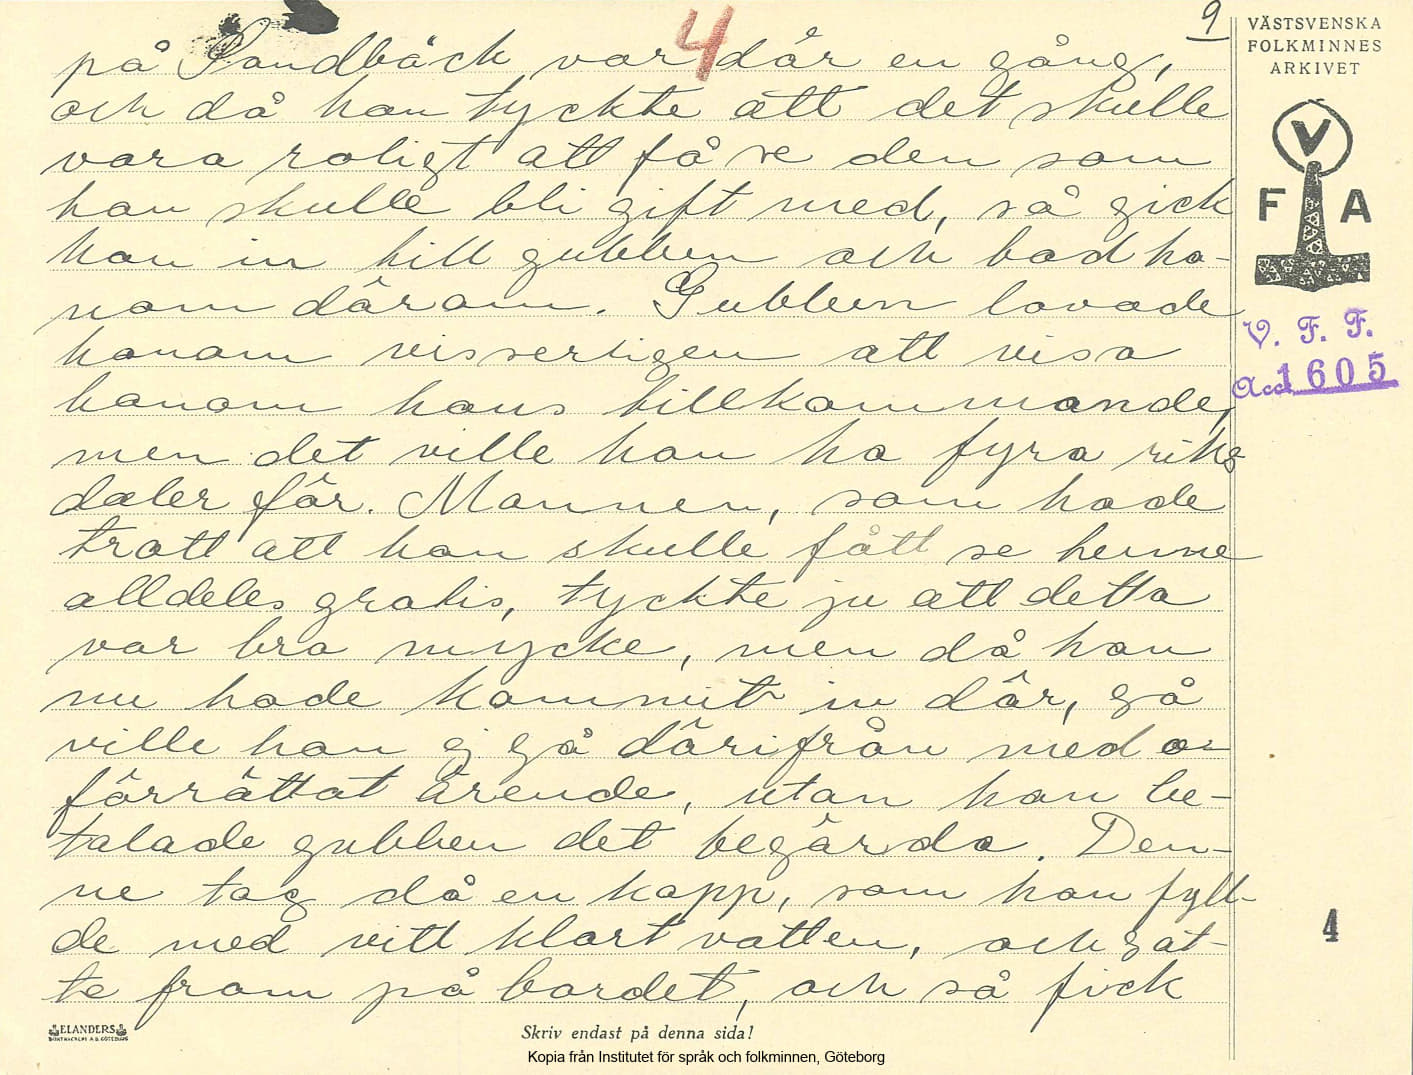 9
4
på Sandbäck var där en gång,
och då han tyckte att det skulle
vara roligt att få se den som
han skulle bli gift med, så gick
han in till gubben och bad ho-
nom därom. Gubben lovade
honom visserligen att visa
honom hans tillkommande,
men det ville han ha fyra riks
daler för. Mannen, som hade
trott att han skulle fått se henne
alldeles gratis, tyckte ju att detta
var bra mycke, men då han
nu hade kommit in där, så
ville han ej gå därifrån med o-
förrättat ärende, utan han be-
talade gubben det begärda. Den-
ne tog då en kopp, som han fyll-
de med vitt klart vatten, och sat-
te fram på bordet, och så fick
VÄSTSVENSKA
FOLKMINNES
ARKIVET
V
F A
V. F. F.
Acc. 1605
4
ELANDERS
BOKTRYCKERI A.B. GÖTEBORG
Skriv endast på denna sida!
Kopia från Institutet för språk och folkminnen, Göteborg